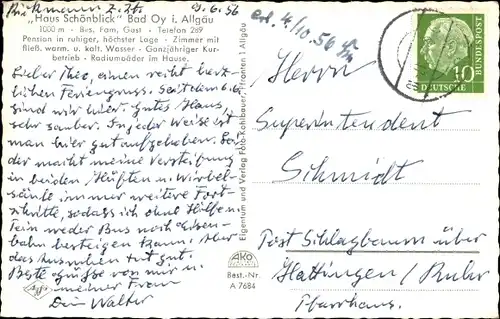 Brinkmann z. Zt. 9.6.56
„Haus Schönblick" Bad Oy i. Allgäu
1000 m - Bes. Fam. Gast - Telefon 269
Pension in ruhiger, höchster Lage - Zimmer mit
fließ. warm. u. kalt. Wasser - Ganzjähriger Kur-
betrieb - Radiumbäder im Hause.
Lieber Theo, einen recht herz-
lichen Feriengruss. Seit dem 6.6.
sind wir hier. Gutes Haus,
sehr sauber. In jeder Weise ist
man hier gut aufgehoben. Lei-
der macht meine Versteifung
in beiden Hüften u. Wirbel-
säule immer weitere Fort-
schritte, sodass ich ohne Hilfe
weder Bus noch Eisen-
bahn besteigen kann. Aber
das Ausruhen tut gut.
Beste Grüsse von mir u.
meiner Frau
Dein Walter
Eigentum und Verlag Foto-Kohlbauer, Pfronten i. Allgäu
AKO
Best.-Nr.
A 7684
Agfa
erl. 4/10.56
10
DEUTSCHE
BUNDESPOST
Herrn
Superintendent
Schmidt
Post Schlagbaum über
Hattingen/Ruhr
Pfarrhaus.